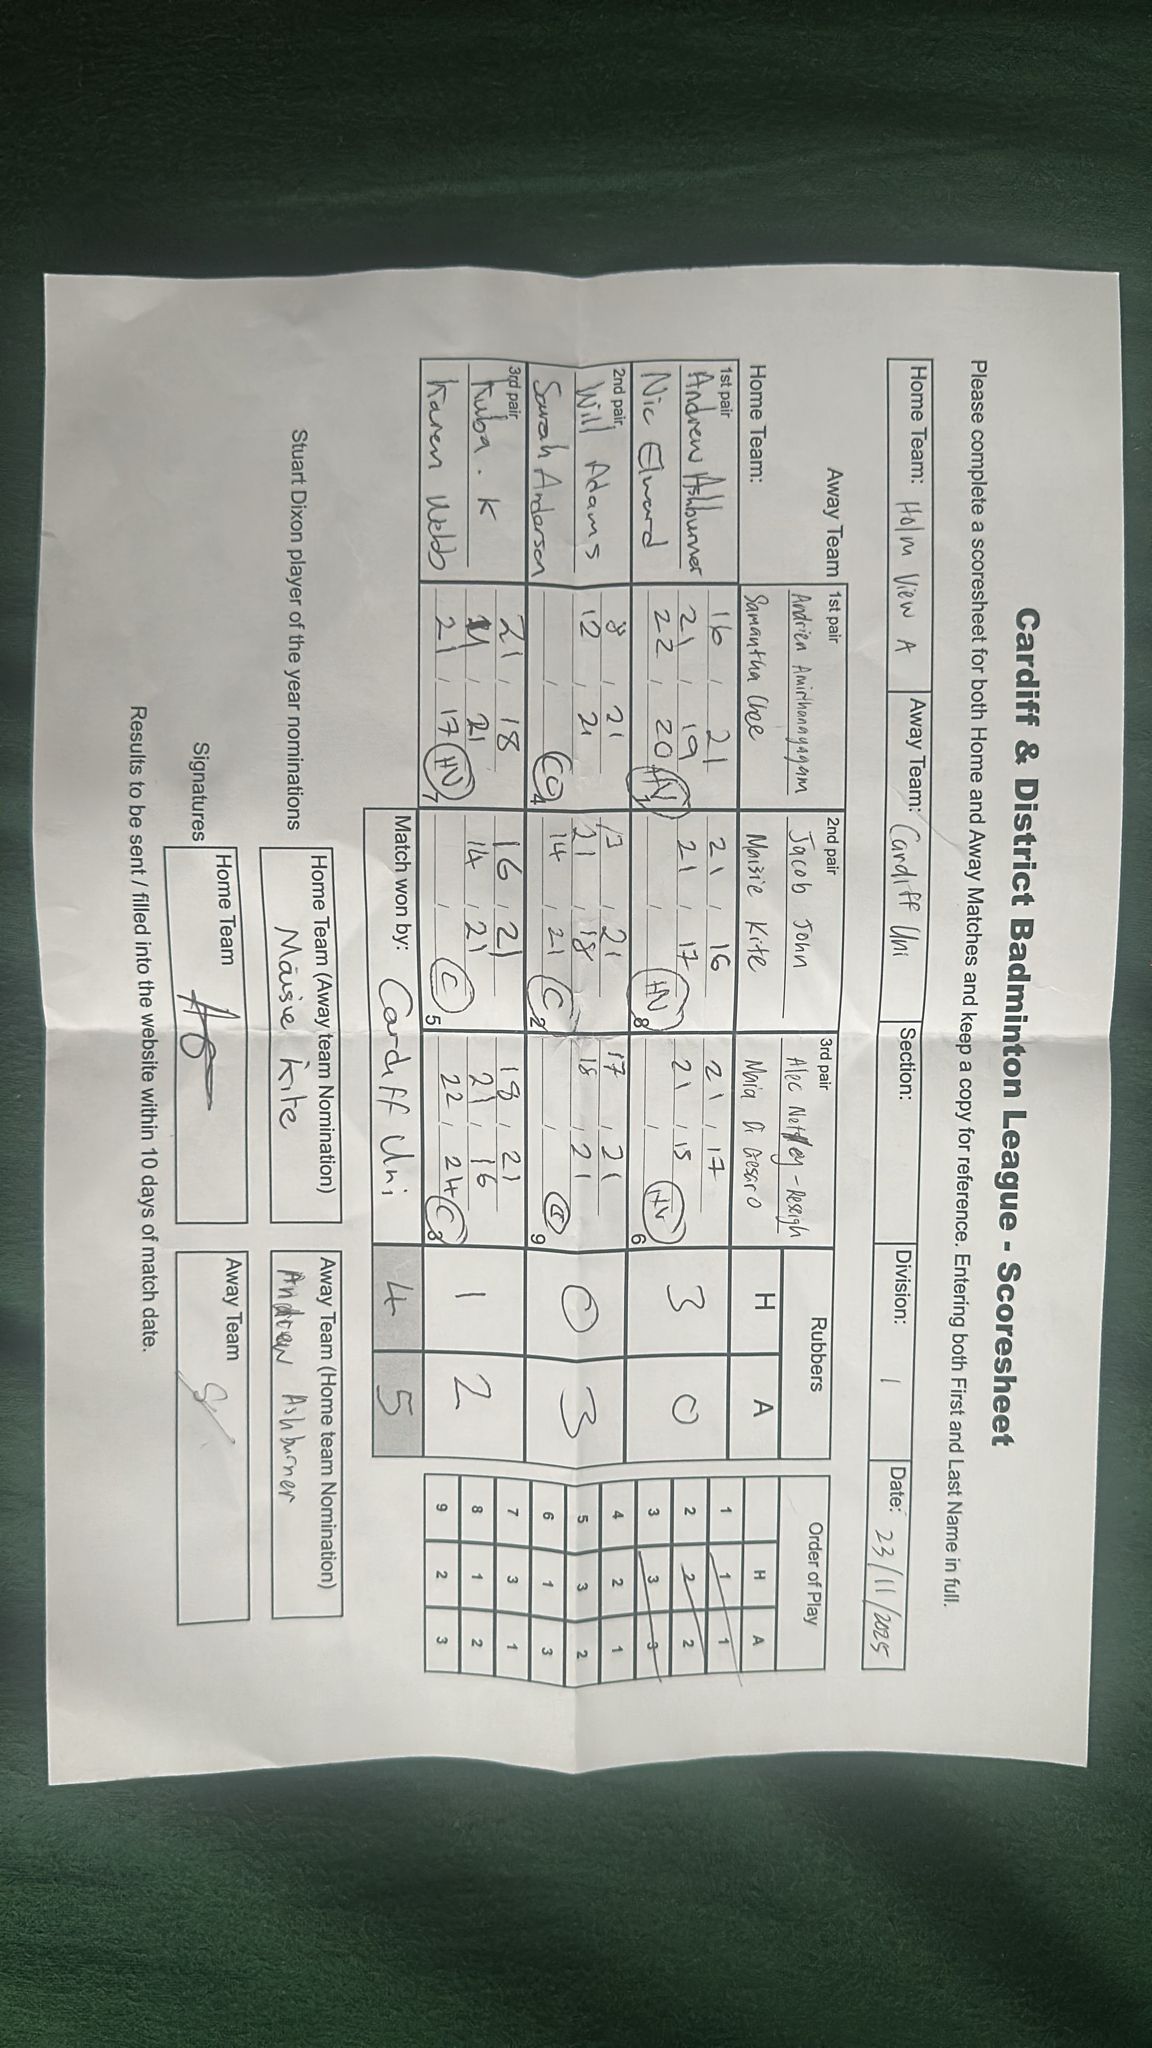 Cardiff & District Badminton League - Scoresheet
Please complete a scoresheet for both Home and Away Matches and keep a copy for reference. Entering both First and Last Name in full.
Home Team: Holm View A Away Team: Cardiff Uni Section: Division: 1 Date: 23/11/2025
Away Team 1st pair 2nd pair 3rd pair Rubbers Order of Play
Andrien Amirthanayagam Jacob John Alec
Home Team: Samantha Chee Maisie Kite Naia Di H A H A
1st pair 16, 21 21, 16 21, 17 1 1 1
Andrew Ashburner 21, 19 21, 17 21, 15 3 0 2 2 2
Nic Elward 22, 20 HV 1 , HV 8 , HV 6 3 3 3
2nd pair 8, 21 13, 21 17, 21 4 2 1
Will Adams 12, 21 21, 18 18, 21 0 3 5 3 2
Sarah Anderson , 4 14, 21 C 2 , C 9 6 1 3
3rd pair 21, 18 16, 21 18, 21 7 3 1
Kuba. K 21 14, 21 21, 16 1 2 8 1 2
Karen Webb 21, 17 HV 7 , C 5 22, 24 C 9 2 3
Match won by: Cardiff Uni 4 5
Home Team (Away team Nomination) Away Team (Home team Nomination)
Stuart Dixon player of the year nominations Maisie Kite Andrew Ashburner
Home Team Away Team
Signatures
Results to be sent / filled into the website within 10 days of match date.